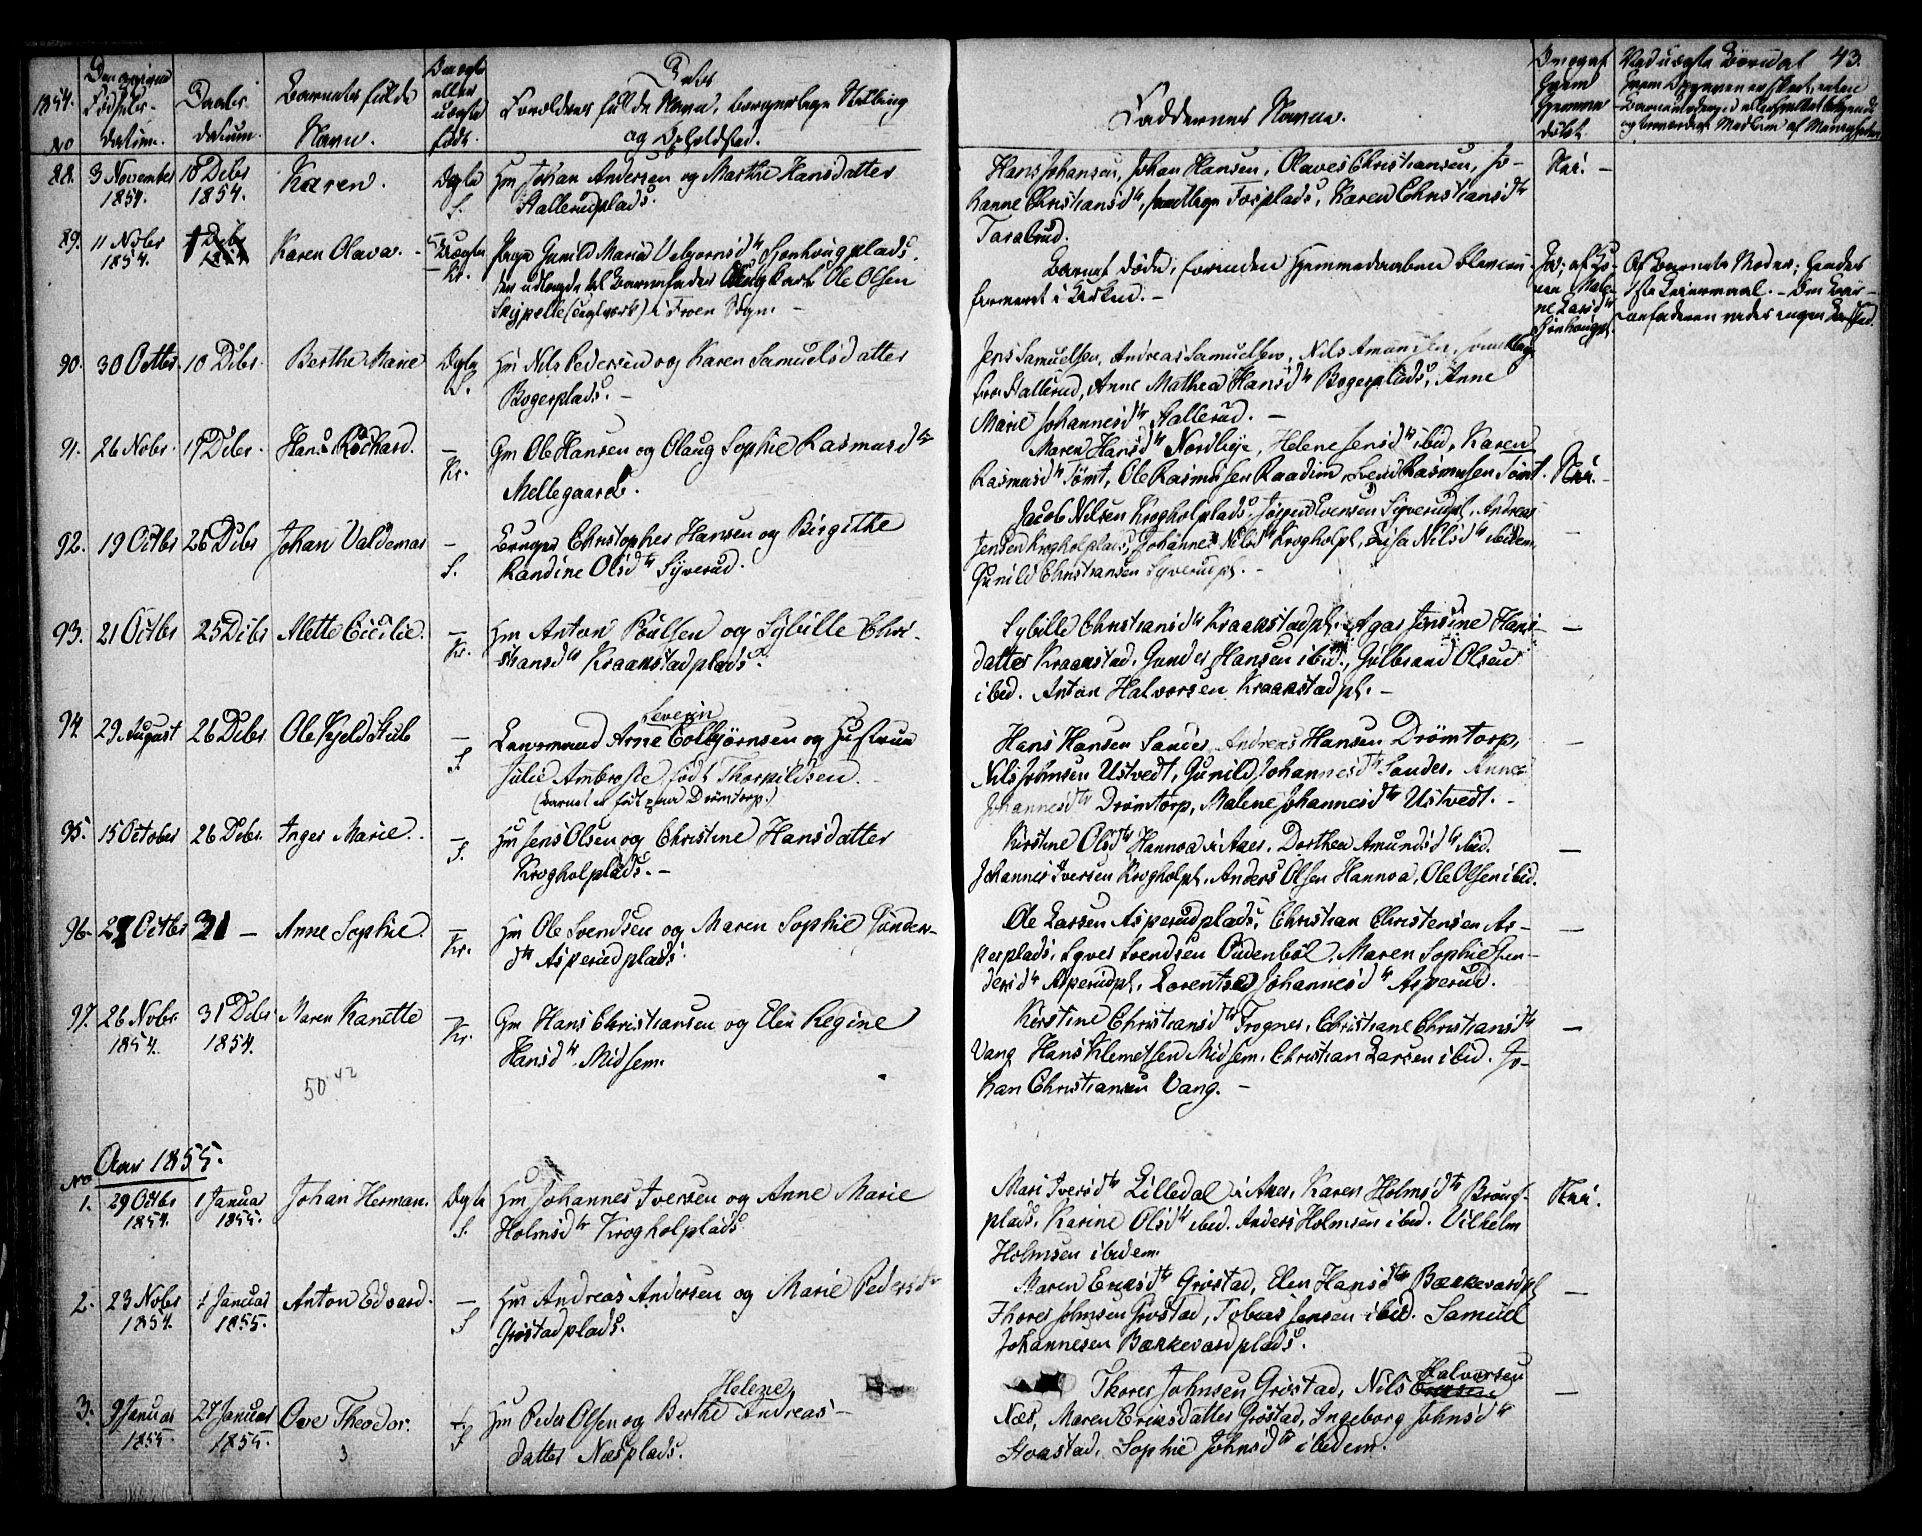 1854.
No
Den givne Fødsels-
datum.
Daabs-
datum.
Barnets fulde
Navn.
Om ægte
eller
uægte
født.
Dets
Forældres fulde Navn, borgerlige Stilling
og Opholdsted.
Faddernes Navne.
Om og af
hvem
hjemme
døbt.
43.
88. 3 November 10 Debr Karen. Ægte Hm Johan Andersen og Marthe Hansdatter
1854. 1854. S. Hallerudplads.
Hans Johansen, Johan Hansen, Olaves Christiansen, Jo-
hanne Christiansdtr, samtlige Fosplads, Karen Christiansdtr
Taralrud.
Nei. -
89. 11 Nobr Debr Karen Olava. - Uægte Pige Gunild Marie Vebjørnsdtr Sønhougplads.
1854. 1854 Kr. den udlagde til Barnefader Ungkarl Ole Olsen
Skjpelle (Tuglværk) i Froen Sogn. -
Barnet døde, forinden Hjemmedaaben blev con-
firmeret i Kirken. -
Af Barnets Moder; hendes
1ste Leiermaal. -
90. 30 Octbr. 10 Debr. Berthe Marie Ægte Hm Nils Pedersen og Karen Samuelsdatter
S. Bogerplads. -
Jens Samuelsen, Andreas Samuelsen, Nils Amundsen, samtlige
fra Hallerud, Anne Mathea Hansdtr Bogerplads, Anne
Marie Johannesdtr Hallerud. -
91. 26 Nobr. 17 Debr. Hans Richard. - Gm Ole Hansen og Olaug Sophie Rasmusdtr
Kr. Mellegaard.
Maren Hansdtr Nordbye, Helene Jensdtr ibid, Karen
Rasmusdtr Tømt, Ole Rasmusen Raadim, Svend Rasmusen Tømt.
Nei. -
92. 19 Octbr 26 Debr Johan Valdemar - Bruger Christopher Hansen og Birgithe
S. Randine Olsdtr Syverud.
Jacob Nilsen Krogholplads, Jørgen Iversen Syverudpl, Andreas
Jensen Krogholplads, Johanne Nilsdtr Krogholpl, Lisa Nilsdtr ibidem,
Gunild Christiansen Syverudpl. -
-
93. 21 Octbr 25 Debr Mette Cecilie. - Hm Anton Poulsen og Sybille Chri-
Kr. stiansdtr Kraakstadplads.
Sybille Christiansdtr Kraakstadpl. Agar Jensine Hans-
datter Kraakstad, Gunder Hansen ibid., Gulbrand Olsen
ibid. Anton Halvorsen Kraakstadpl. -
-
94. 29 August 26 Debr Ole Kjeld Stub - Lensmand Arne Severin Colbjørnsen og Hustrue
S Julie Ambrosie født Thorkildsen. -
(Barnet er født paa Drømtorp.)
Hans Hansen Sander, Andreas Hansen Drømtorp,
Nils Johnsen Ustvedt, Gunild Johannesdtr Sander, Anne
Johannesdtr Drømtorp, Malene Johannesdtr Ustvedt. -
-
95. 15 October 26 Debr. Inger Marie. - Hm Jens Olsen og Christine Hansdatter
S. Krogholplads. -
Kirstine Olsdtr Hannoa i Aaes, Dorthea Amundsdtr ibid.
Johannes Iversen Krogholpl, Anders Olsen Hannoa, Ole Olsen ibid.
-
96. 21 Octbr 31 - Anne Sophie. - Hm Ole Svendsen og Maren Sophie Gunders-
Kr. dtr Asperudplads.
Ole Larsen Asperudplads, Christian Christensen As-
perplads, Syver Svendsen Oudenbøl, Maren Sophie Gun-
dersdtr Asperudpl, Lorentse Johannesdtr Asperud.
-
97. 26 Nobr. 31 Debr Maren Kanette - Gm Hans Christiansen og Elen Regine
1854. 1854. Kr. Hansdtr Midsem.
Kirstine Christiansdtr Frogner, Christiane Christiansdtr
Vang, Hans Klemetsen Midsem, Christian Larsen ibid. Jo-
han Christiansen Vang. -
-
50 42
Aar 1855.
No
1. 29 Octbr 1 Januar Johan Herman. Ægte Hm Johannes Iversen og Anne Marie
1854. 1855. S. Holmsdtr Krogholplads
Mari Iversdtr Lilledal i Aaes, Karen Holmsdtr Brøngs-
plads, Karine Olsdtr ibid. Anders Holmsen ibid. Vilhelm
Holmsen ibidem.
Nei.
2. 23 Nobr 1 Januar Anton Edvard. - Hm Andreas Andersen og Marie Pedersdtr
1854. 1855. S Grøstadplads.
Maren Eriksdtr Grøstad, Elen Hansdtr Bækkevardpl
Thorer Johnsen Grøstad, Tobias Jensen ibid. Samuel
Johannesen Bækkevardplads.
-
3. 9 Januar 27 Januar Ove Theodor. - Hm Peder Olsen og Berthe Helene Andreas-
1855. 1855. S datter Næsplads.
3
Thorer Johnsen Grøstad, Nils Halvorsen
Næs, Maren Eriksdatter Grøstad, Ingeborg Johnsdtr
Hvastad, Sophie Johnsdtr ibidem.
-